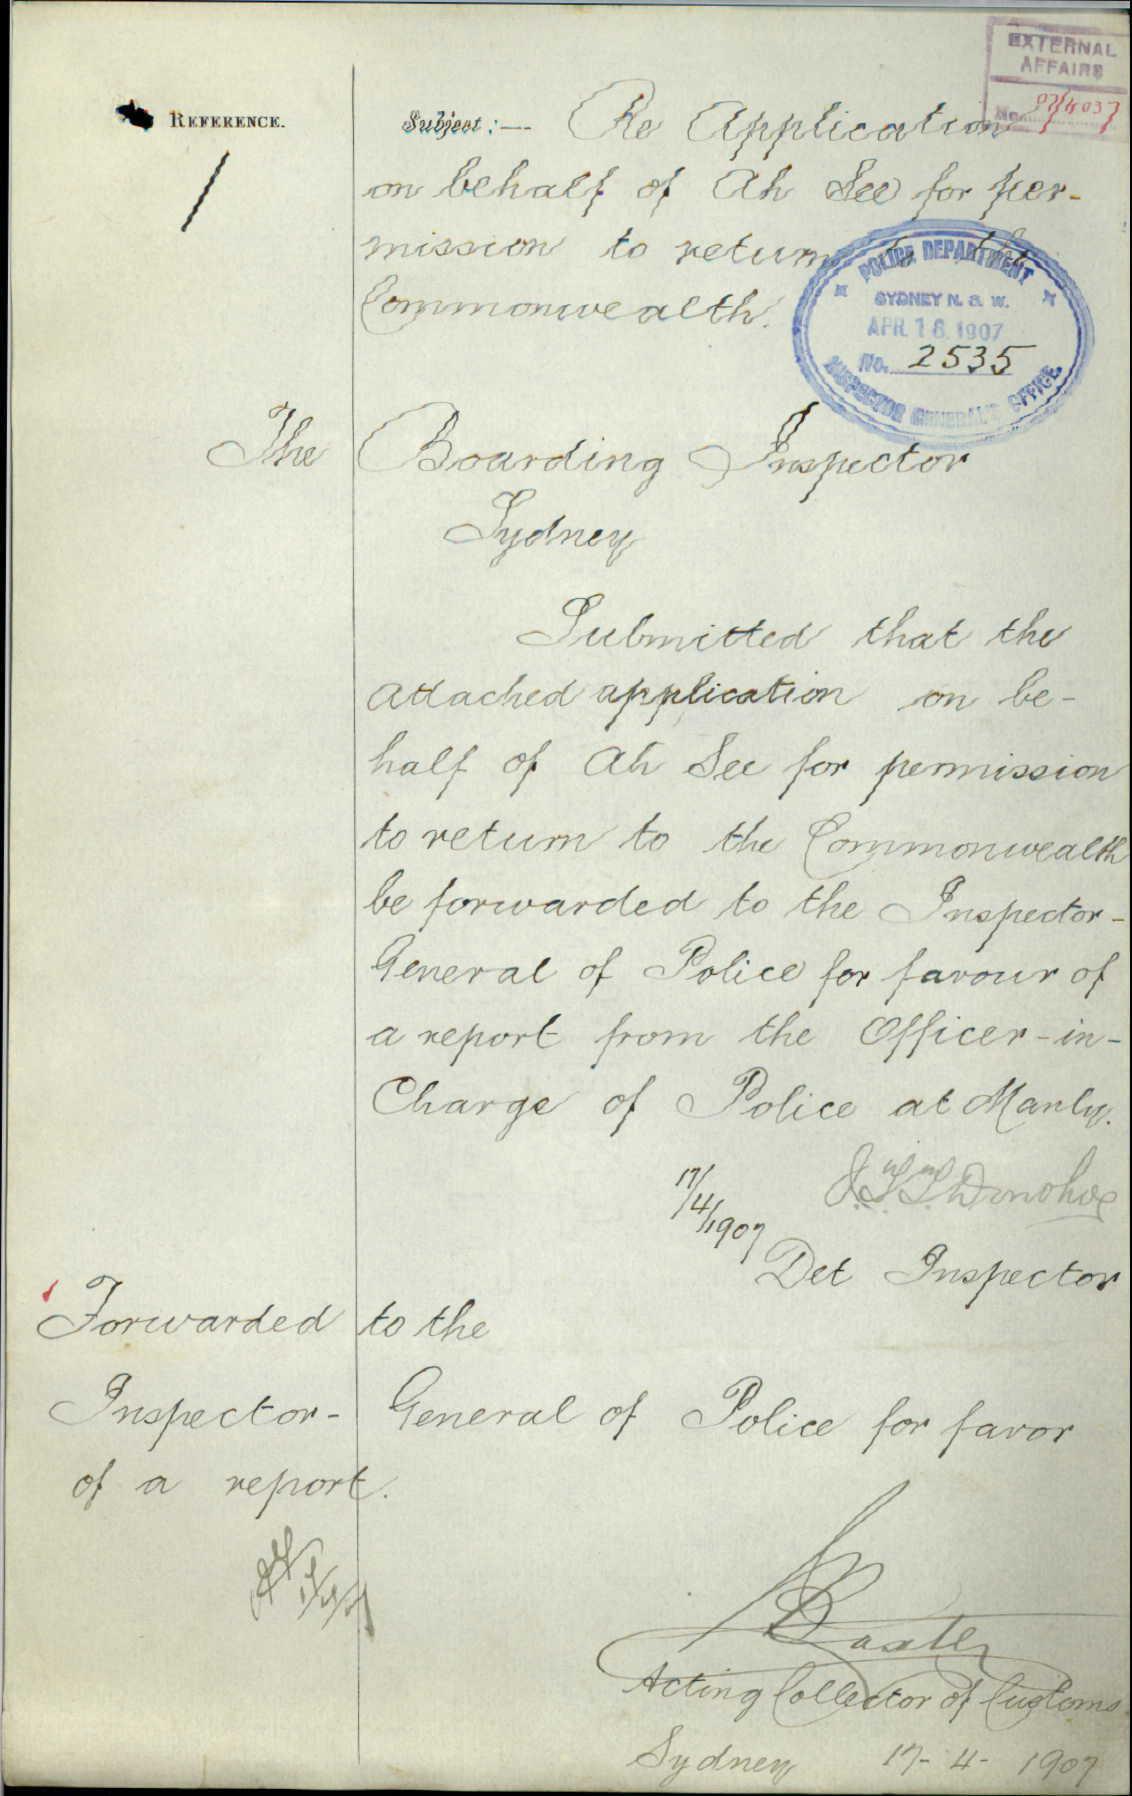 EXTERNAL
AFFAIRS
No. 07/4037
REFERENCE.
Subject:— Re Application
on behalf of Ah See for per-
mission to return to the
Commonwealth.
POLICE DEPARTMENT
SYDNEY N. S. W.
APR 18 1907
No. 2535
INSPECTOR GENERAL'S OFFICE
The Boarding Inspector
Sydney
Submitted that the
attached application on be-
half of Ah See for permission
to return to the Commonwealth
be forwarded to the Inspector-
General of Police for favour of
a report from the Officer-in-
Charge of Police at Manly.
Donohoe
17/4/1907
Det Inspector
Forwarded to the
Inspector- General of Police for favor
of a report.
Baxter
Acting Collector of Customs
Sydney 17-4-1907